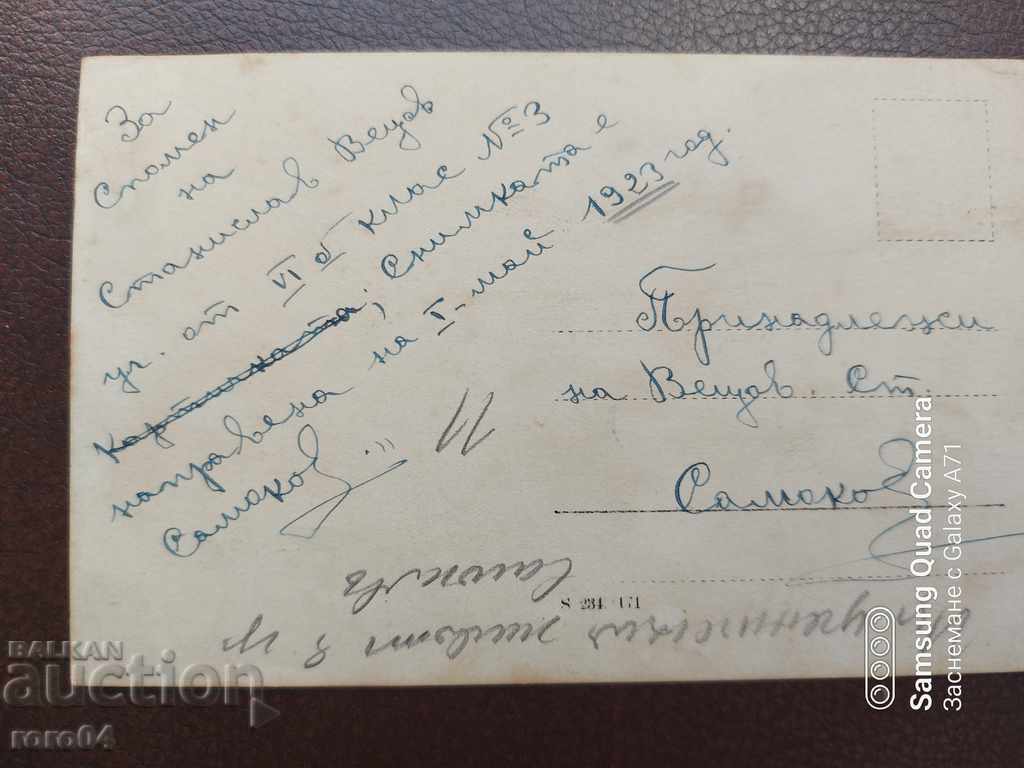 За
спомен
на
Станислав Вецов
уч. от VI а клас № 3
Картината; Снимката е
направена на I-май 1923 год.
Самоков
11
Принадлежи
на Вецов. Ст.
Самоков
S 234/171
живот 8 гр
BALKAN
auction
roro04
Samsung Quad Camera
Заснемане с Galaxy A71